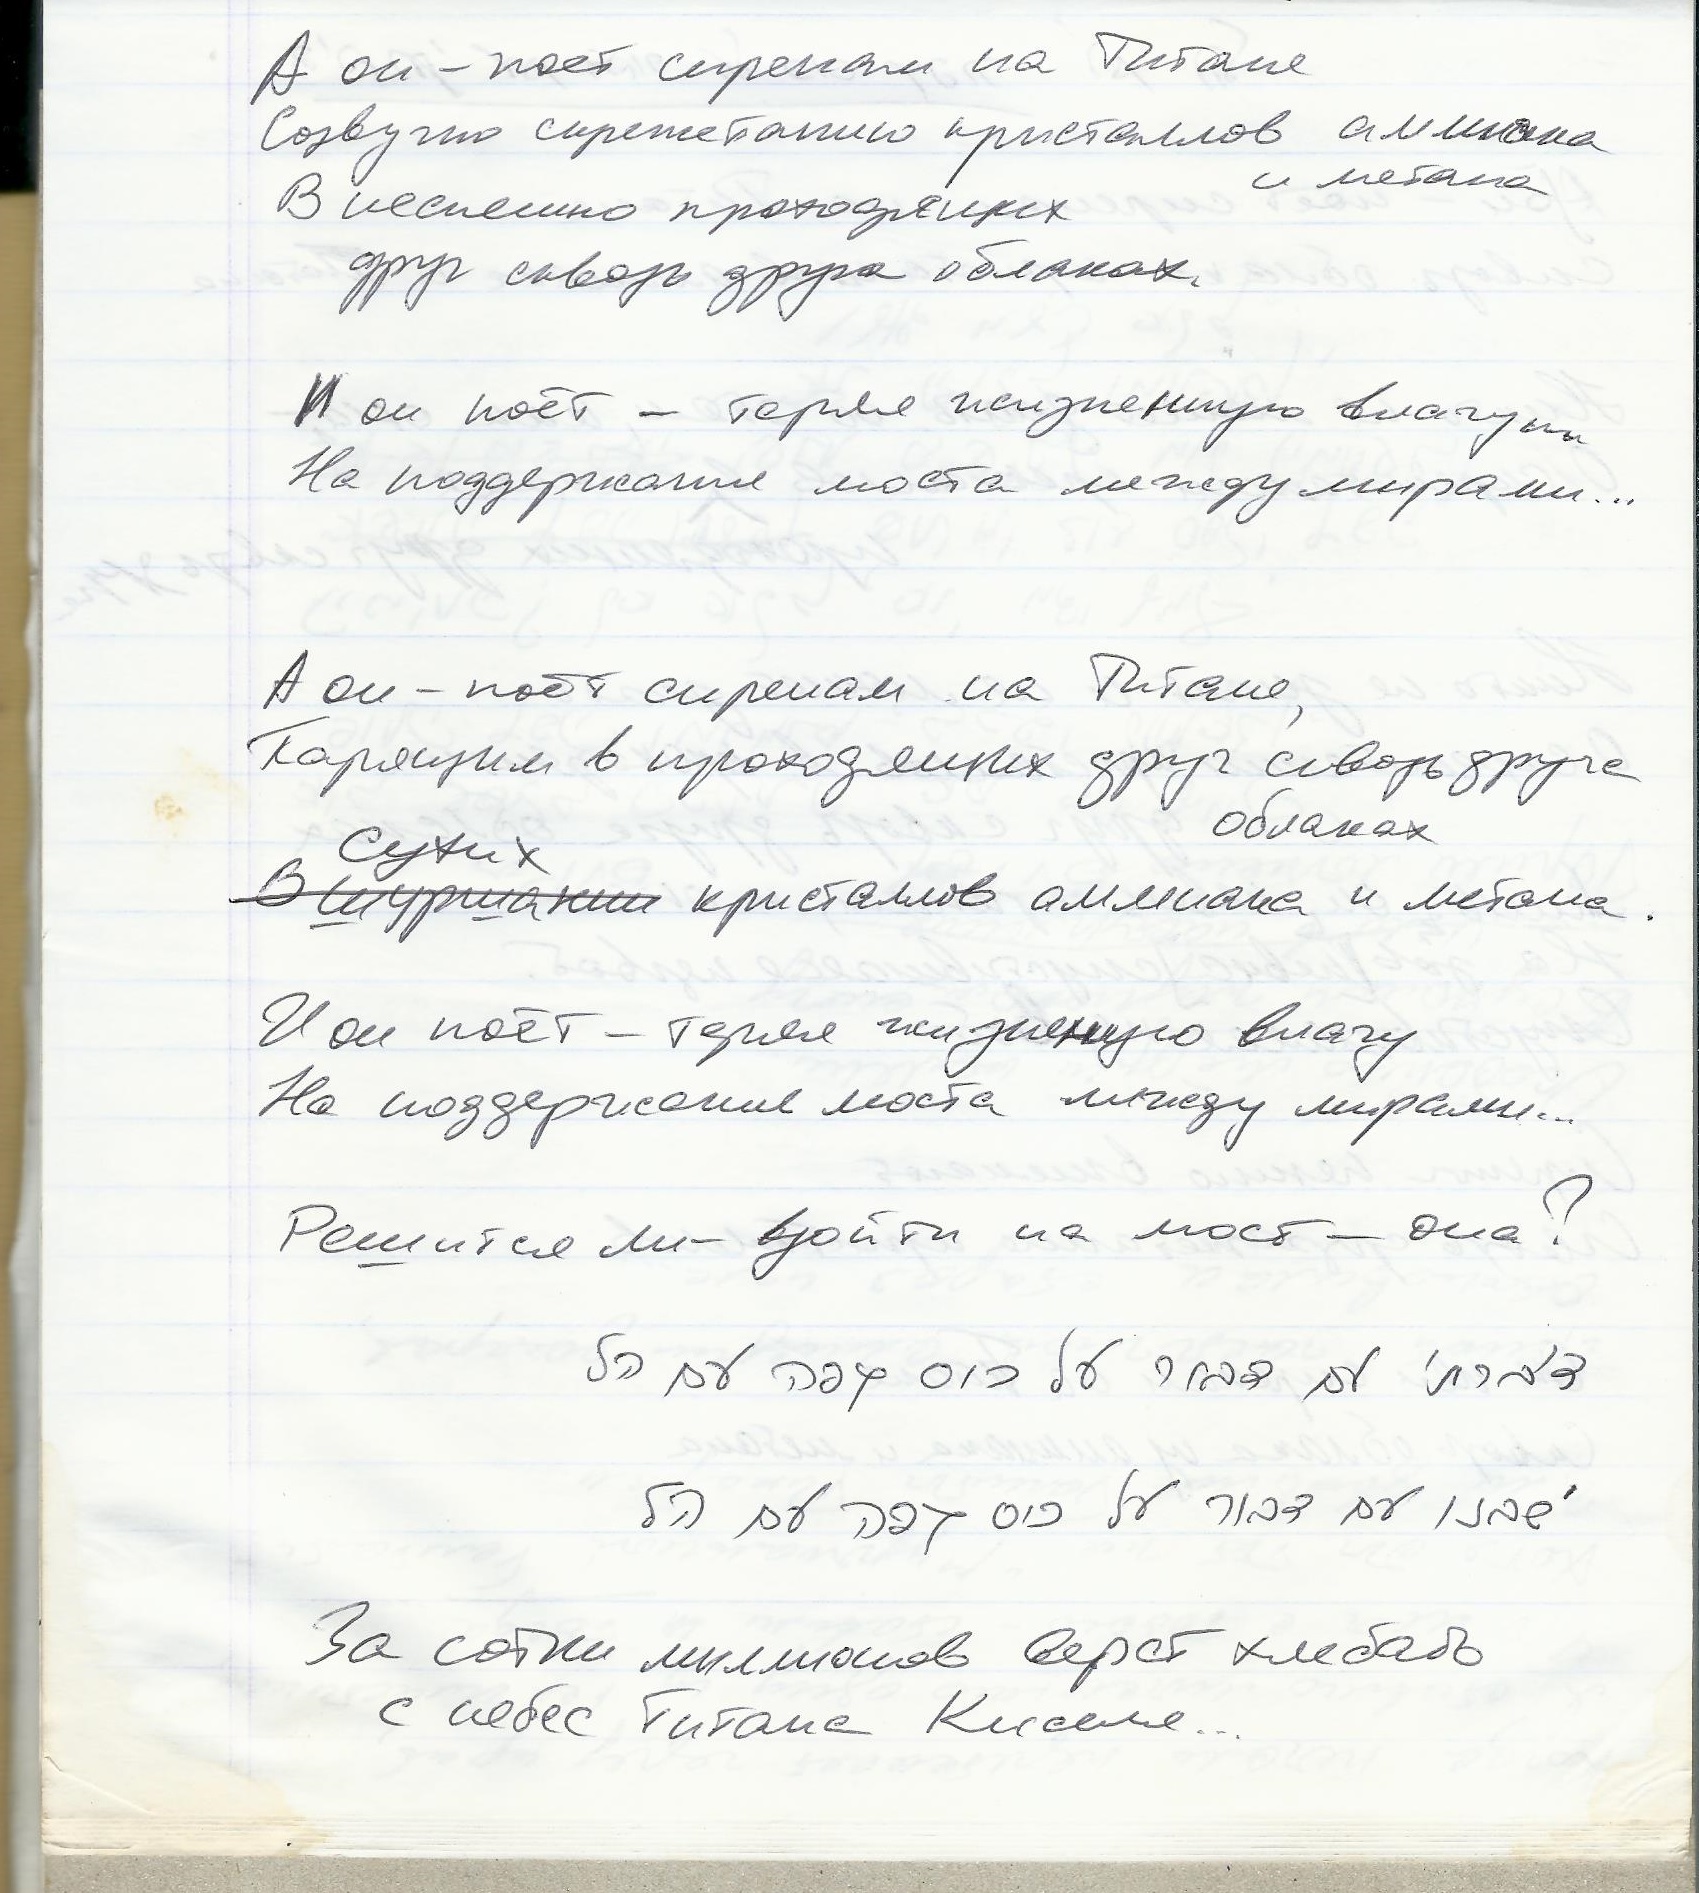 А он – поет сиренам на Титане
Созвучно скрежетанию кристаллов аммиака
и метана
В неспешно проходящих
друг сквозь друга облаках.
И он поёт – теряя жизненную влагу
На поддержание моста между мирами...
А он – поёт сиренам на Титане,
Парящим в проходящих друг сквозь друга
облаках
Сухих
В шуршании кристаллов аммиака и метана.
И он поёт – теряя жизненную влагу
На поддержание моста между мирами...
Решится ли – взойти на мост – она?
דיברתי עם דבור על כוס קפה עם הל
ישבנו עם דבור על כוס קפה עם הל
За сотни миллионов верст хлебать
с небес Титана Кисель...